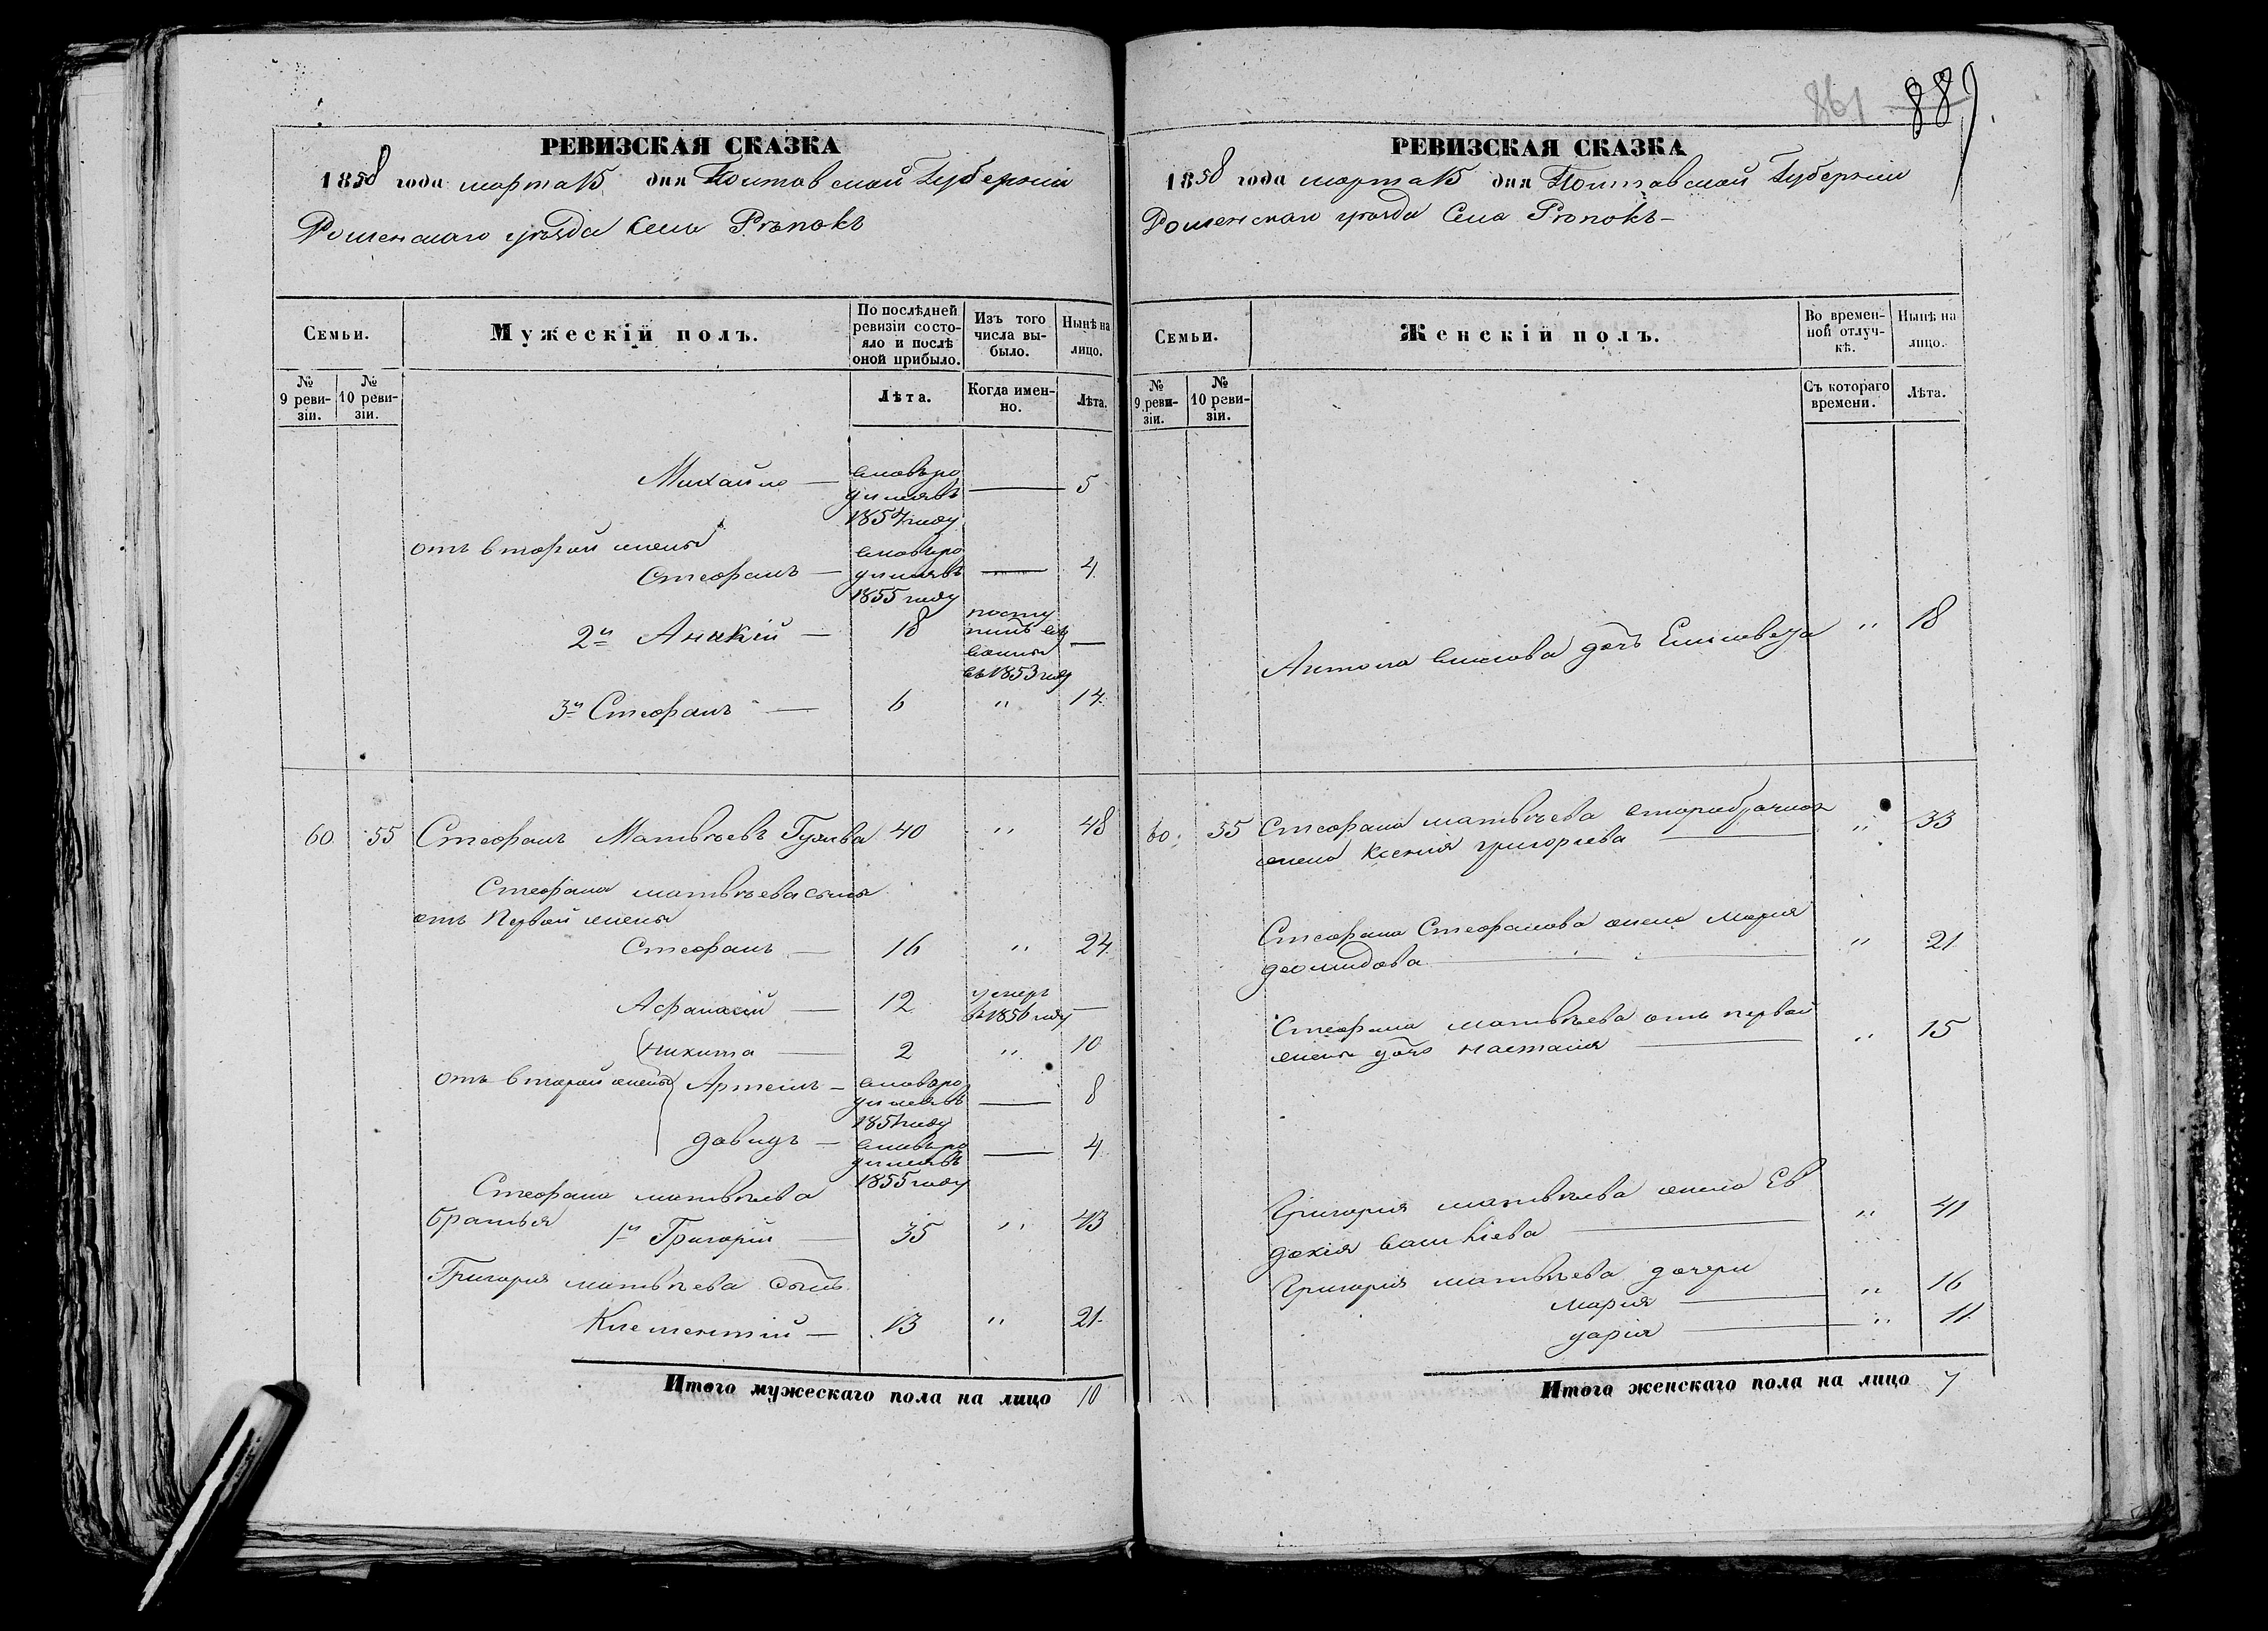 861 889
РЕВИЗСКАЯ СКАЗКА
1858 года марта 15 дня Полтавской Губернiи
Роменскаго уѣзда Села Рѣпокъ
Семьи.
Мужескiй полъ.
По послѣдней ревизiи состояло и послѣ оной прибыло.
Изъ того числа выбыло.
Нынѣ на лицо.
№ 9 ревизiи.
№ 10 ревизiи.
Лѣта.
Когда именно.
Лѣта.
Михайло — 1854 году — 5
отъ второй жены
Стефанъ — 1855 году — 4
2й Аникiй — 18 посту
пилъ въ
въ 1853 году —
3й Стефанъ — 6 " 14
60. 55 Стефанъ Матвѣевъ 40 " 48
Стефана матвѣева сыны
отъ Первой жены
Стефанъ — 16 " 24.
Афанасiй — 12 умеръ
въ 1856 году —
Никита — 2 " 10
отъ второй жены Артемъ — 1851 году — 8
Давидъ — 1855 году — 4
Стефана матвѣева
братья 1й Григорiй 35 " 43
Григорiя матвѣева сынъ
Климентiй — 13 " 21.
Итого мужескаго пола на лицо 10
РЕВИЗСКАЯ СКАЗКА
1858 года марта 15 дня Полтавской Губернiи
Роменскаго уѣзда Села Рѣпокъ
Семьи.
Женскiй полъ.
Во временной отлучкѣ.
Нынѣ на лицо.
№ 9 ревизiи.
№ 10 ревизiи.
Съ котораго времени.
Лѣта.
дочь Елисавета " 18
60. 55 Стефана матвѣева второбрачная
жена Ксенiя григорiева " 33
Стефана Стефанова жена Марiя
дiомидова " 21.
Стефана матвѣева отъ первой
жены дочь Настасiя " 15
Григорiя матвѣева жена Ев
докiя " 41
Григорiя матвѣева дочери
Марiя " 16
дарiя " 11.
Итого женскаго пола на лицо 7